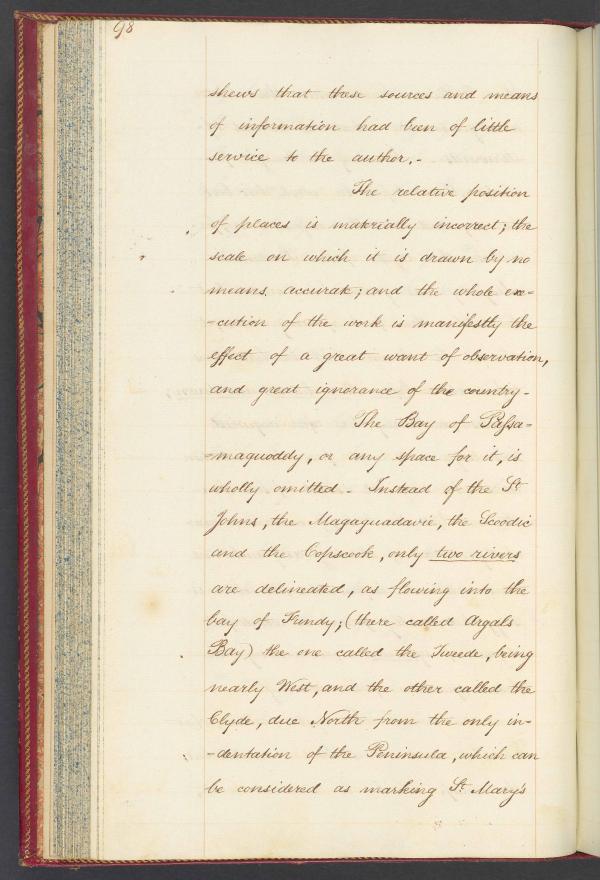 98
shews that these sources and means
of information had been of little
service to the author.-
The relative position
of places is materially incorrect; the
scale on which it is drawn by no
means accurate; and the whole exe-
-cution of the work is manifestly the
effect of a great want of observation,
and great ignorance of the country-
The Bay of Passa-
-maquoddy, or any space for it, is
wholly omitted - Instead of the St
Johns, the Magaguadavic, the Scoodic
and the Copscook, only two rivers
are delineated, as flowing into the
bay of Fundy; (there called Argals
Bay) the one called the Tweede, being
nearly West, and the other called the
Clyde, due North from the only in-
-dentation of the Peninsula, which can
be considered as marking St Mary's